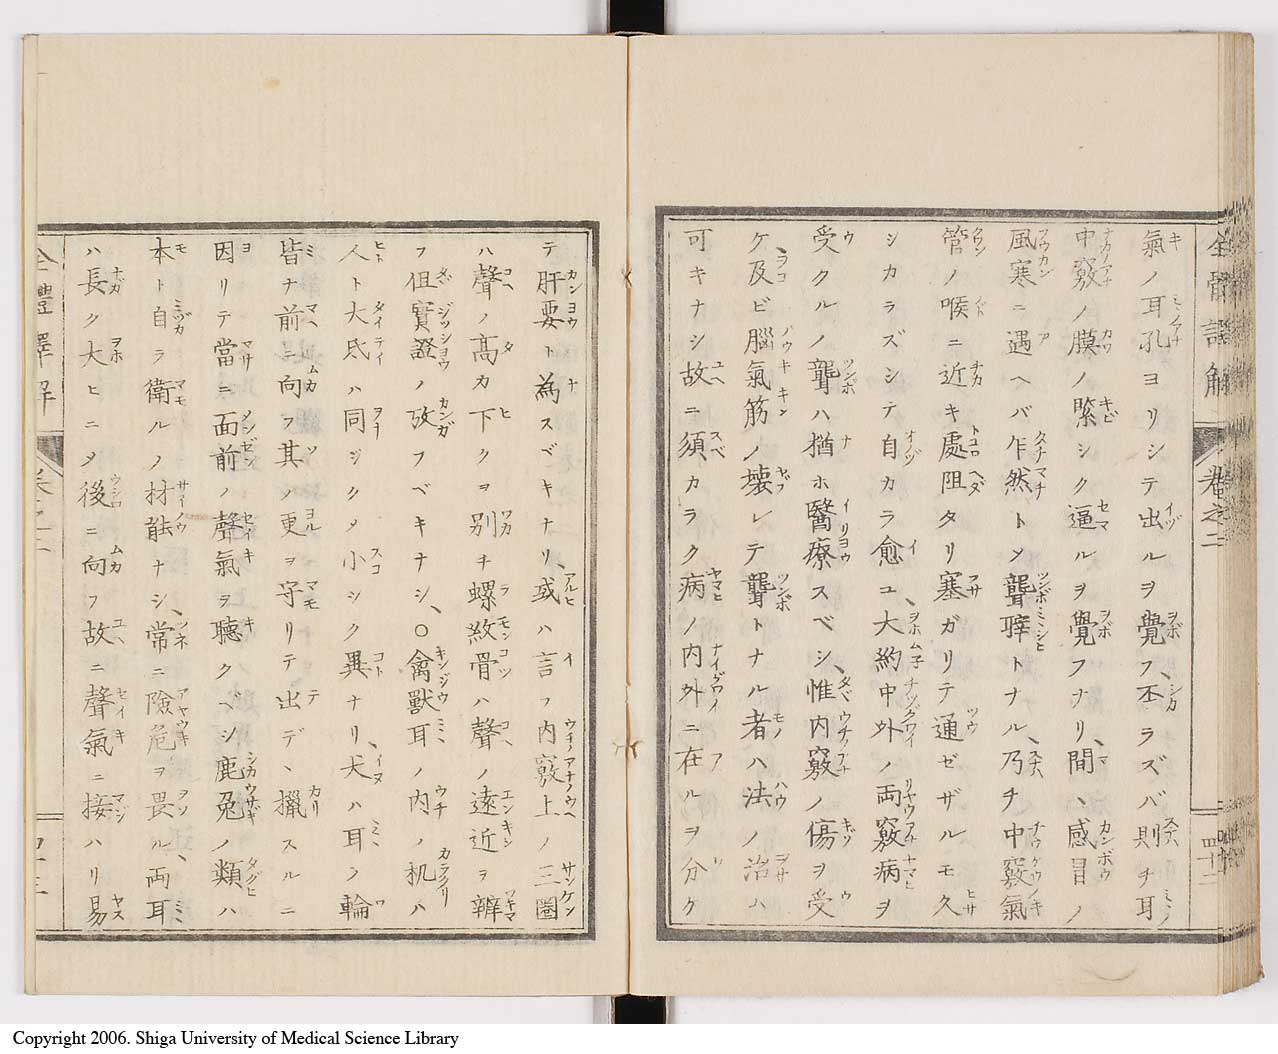 氣ノ耳孔ヨリシテ出ルヲ覺フ不ラズバ則チ耳
中竅ノ膜ノ緊シク逼ルヲ覺フナリ、間、感冒ノ
風寒ニ遇ヘバ乍然トメ聾聹トナル、乃チ中竅氣
管ノ喉ニ近キ處阻タリ塞ガリテ通ゼザルモ久
シカラズシテ自カラ愈ユ、大約中外ノ両竅病ヲ
受クルノ聾ハ猶ホ醫療スベシ、惟内竅ノ傷ヲ受
ケ、及ビ腦氣筋ノ壊レテ聾トナル者ハ法ノ治ハ
可キナシ故ニ須カラク病ノ内外ニ在ルヲ分ケ
テ肝要ト為スベキナリ、或ハ言フ内竅上ノ三圏
ハ聲ノ高カ下クヲ別チ螺紋骨ハ聲ノ遠近ヲ辨
フ伹實證ノ攷フベキナシ、○禽獸耳ノ内ノ机ハ
人ト大氐ハ同ジクメ小シク異ナリ、犬ハ耳ノ輪
皆ナ前ニ向フ其ノ更ヲ守リテ出デ、獵スルニ
因リテ當ニ面前ノ聲氣ヲ聴クヘシ鹿兔ノ類ハ
本ト自ラ衛ルノ材能ナシ、常ニ險危ヲ畏ル、両耳
ハ長ク大ヒニメ後ニ向フ故ニ聲氣ニ接ハリ易
卷之二
四十二
Copyright 2006. Shiga University of Medical Science Library